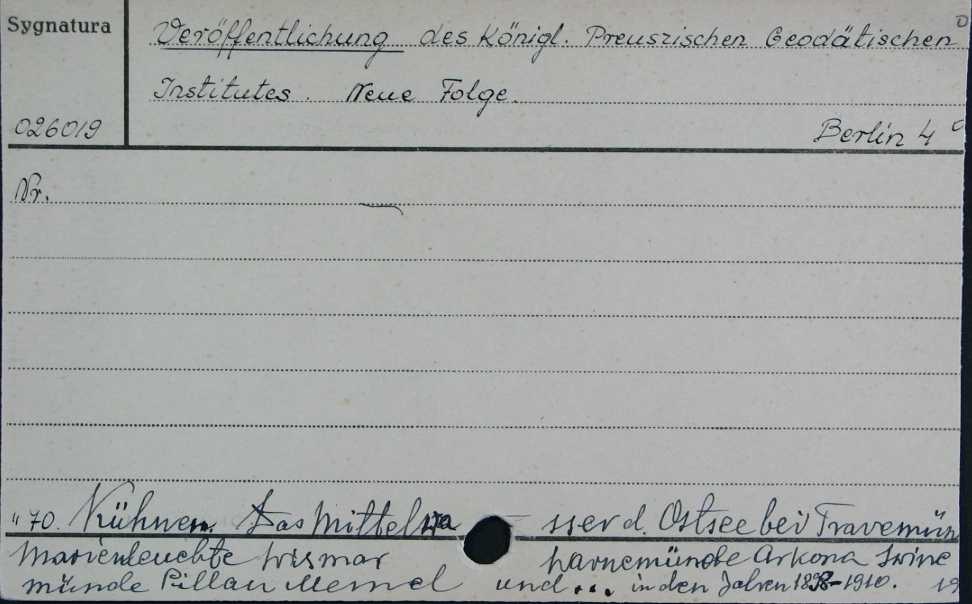 Sygnatura
Veröffentlichung des Königl. Preuszischen Geodätischen
Institutes. Neue Folge.
026019
Berlin 4°
Nr.
" 70. Kühnen. Das Mittelwa - sser d. Ostsee bei Travemün
Marienleuchte Wismar Warnemünde Arkona Swine
münde Pillau Memel und ... in den Jahren 1898-1910. 19